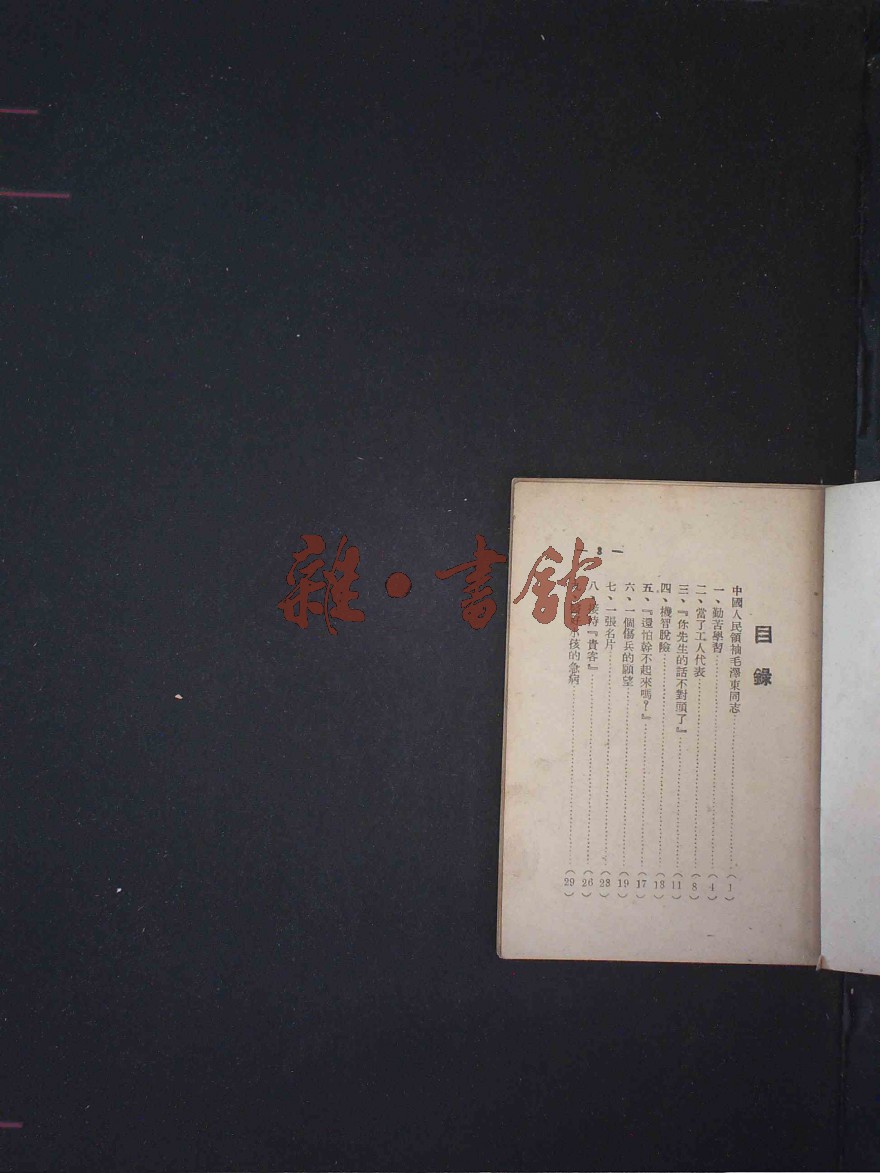 目錄
中國人民領袖毛澤東同志……（1）
一、勤苦學習……（4）
二、當了工人代表……（8）
三、『你先生的話不對頭了』……（11）
四、機智脫險……（13）
五、『還怕幹不起來嗎？』……（17）
六、一個傷兵的願望……（19）
七、一張名片……（23）
八、接待『貴客』……（26）
小孩的急病……（29）
雜·書館